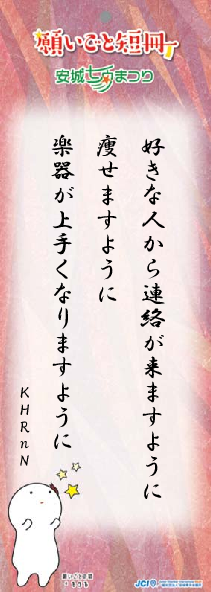 願いごと短冊
安城七夕まつり
好きな人から連絡が来ますように
痩せますように
楽器が上手くなりますように
KHRnN
JCI